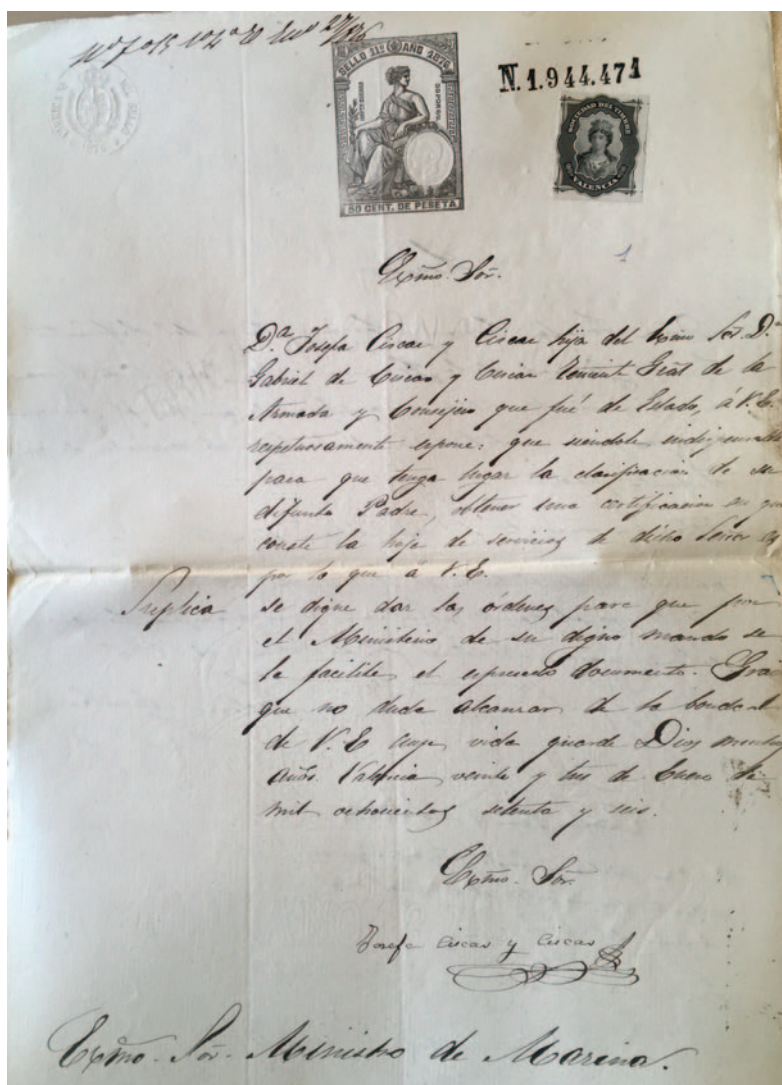 Enero 27/876
SELLO 11º AÑO 1876
50 CENT. DE PESETA
N. 1.944.471
SOCIEDAD DEL TIMBRE
VALENCIA
1
Exmo. Sor.
D.ª Josefa Ciscar y Ciscar hija del Exmo Sor. D.n
Gabriel de Ciscar y Ciscar Teniente Gral de la
Armada y Consejero que fué de Estado, á V.E.
respetuosamente espone: que siendole indispensable
para que tenga lugar la clasificacion de su
difunto Padre, obtener una certificacion en que
conste la hoja de servicios de dicho Señor es
por lo que á V.E.
Suplica se digne dar las órdenes para que por
el Ministerio de su digno mando se
le facilite el espresado documento. Gracia
que no duda alcanzar de la bondad
de V.E. cuya vida guarde Dios muchos
años. Valencia veinte y tres de Enero de
mil ochocientos setenta y seis.
Exmo. Sor.
Josefa Ciscar y Ciscar
Exmo. Sor. Ministro de Marina.